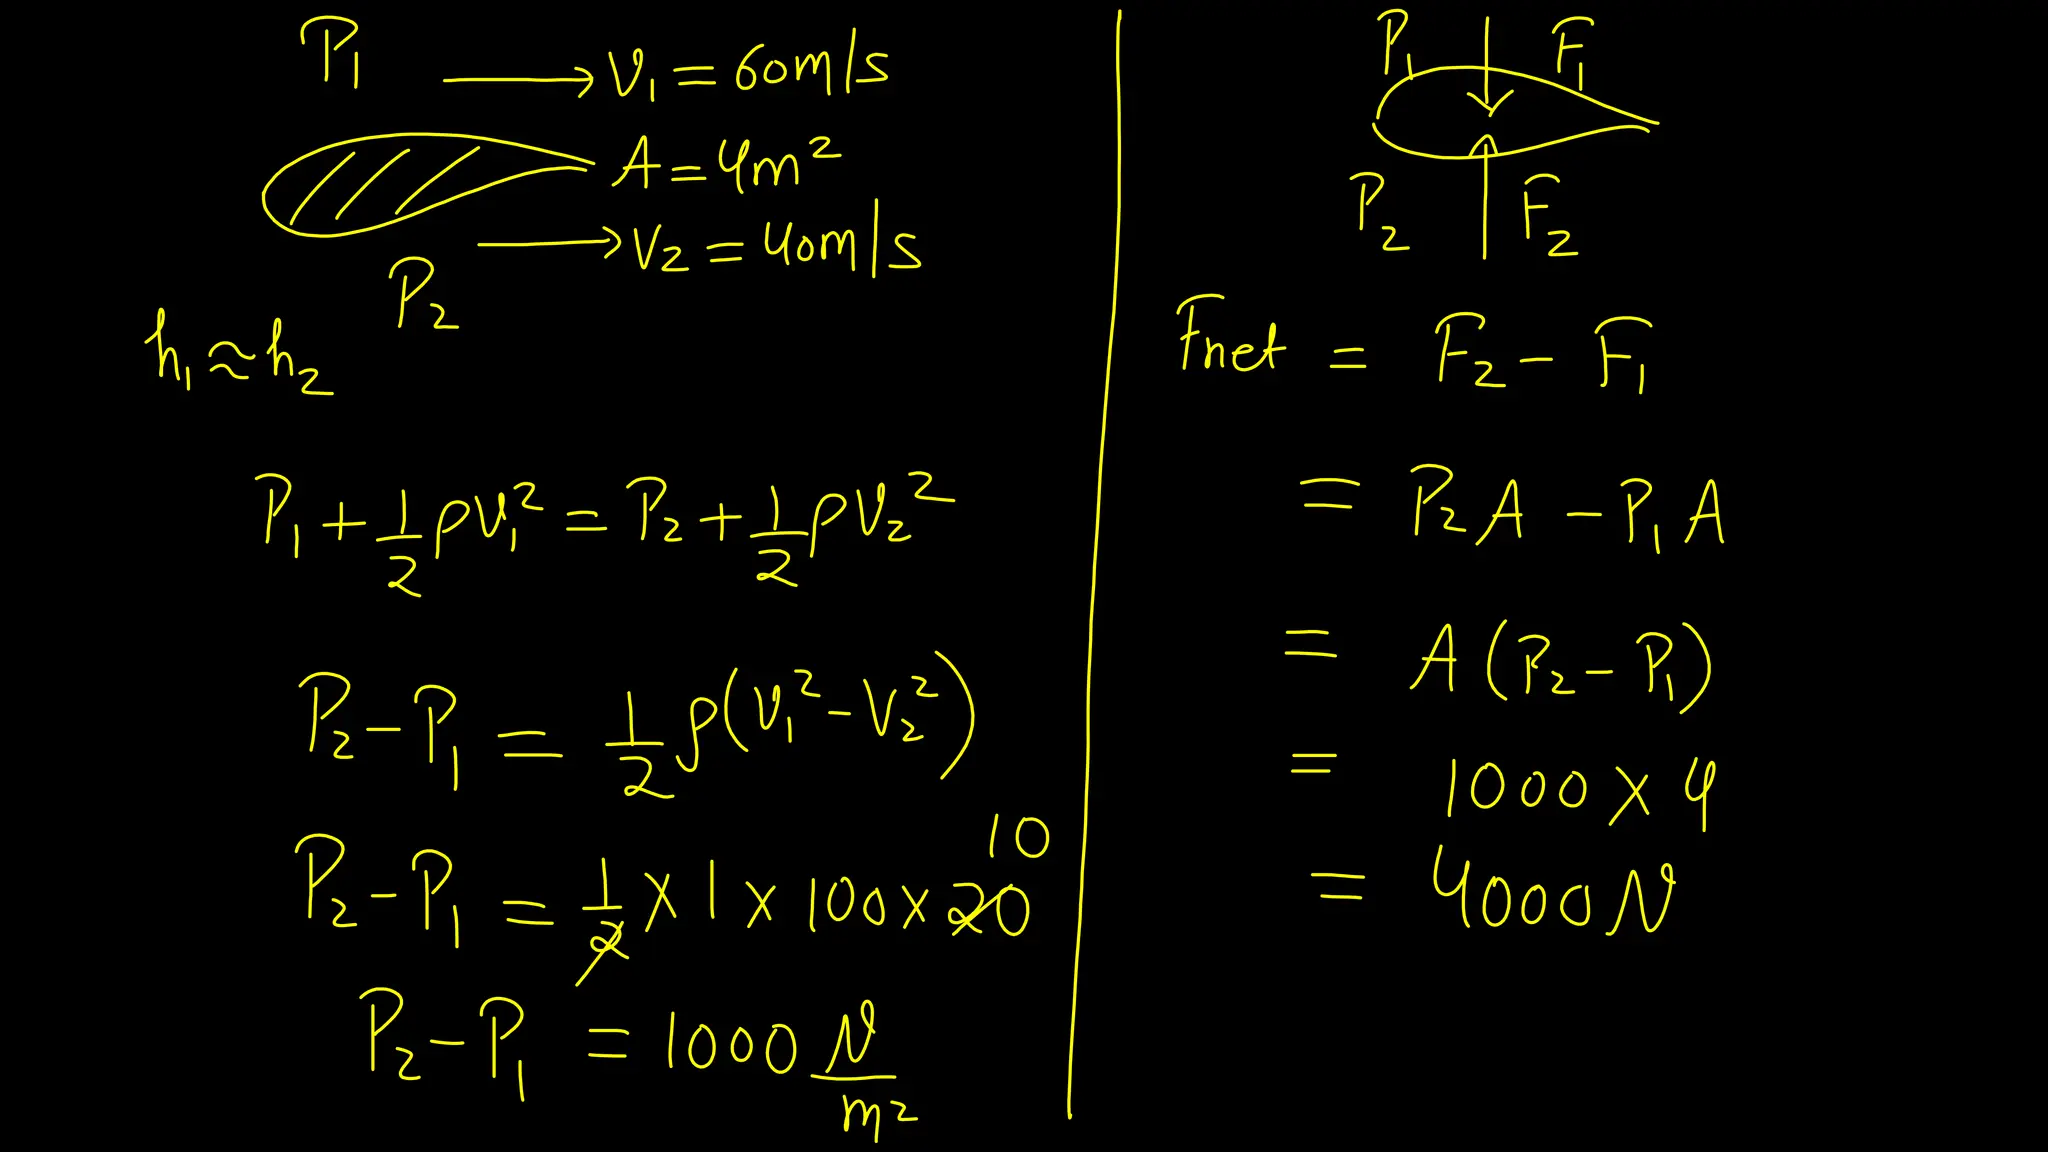 P₁ → V₁ = 60m/s
A = 4m²
P₂ → V₂ = 40m/s
h₁ ≈ h₂
P₁ + 1/2 ρV₁² = P₂ + 1/2 ρV₂²
P₂ - P₁ = 1/2 ρ(V₁² - V₂²)
10
P₂ - P₁ = 1/2 × 1 × 100 × 20
P₂ - P₁ = 1000 N/m²
P₁ F₁
P₂ F₂
Fnet = F₂ - F₁
= P₂A - P₁A
= A(P₂ - P₁)
= 1000 × 4
= 4000N